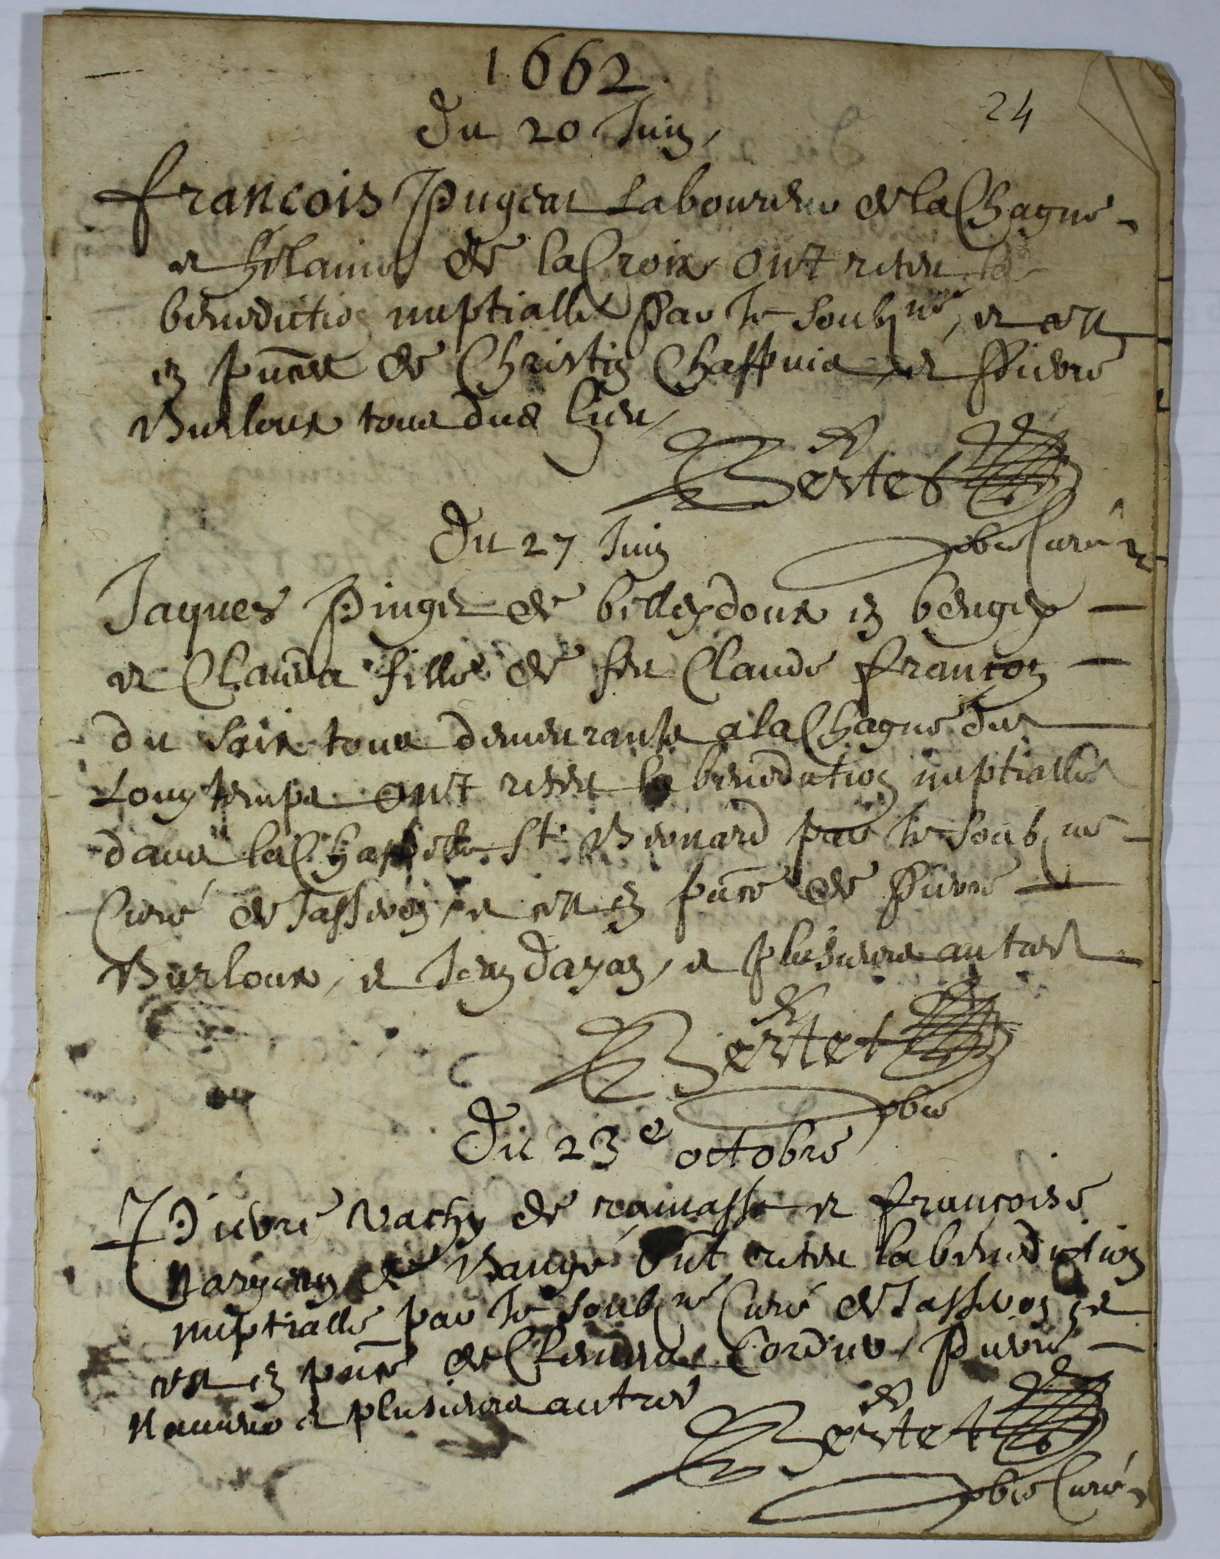 1662
24
Du 20 Juin
francois Pugeat Laboureur de la Chagne
et helaine de la Croix ont receu la
benediction nuptialle par le soubne, et cest
en pnce de Christin Chappuis et Pierre
Burloux tous dud lieu
Bertet
pbre Curé
Du 27 Juin
Jaques Pinget de belleydoux en beugey
et Clauda fille de feu Claude francon
du soix tous demeurants a la Chagne des
Long temps ont receu la benediction nuptialle
dans la Chappelle St Bernard par le soubne
Curé de et cest en pnce de Pierre
Burloux, et Jean dayan, et plusieurs autres
Bertet
pbre
Du 23e octobre
Pierre Vachy de et francoise
de Baugé ont receu la benediction
nuptialle par le soubne Curé de et
cest en pnce de Cordier, Pierre
et plusieurs autres
Bertet
pbre Curé